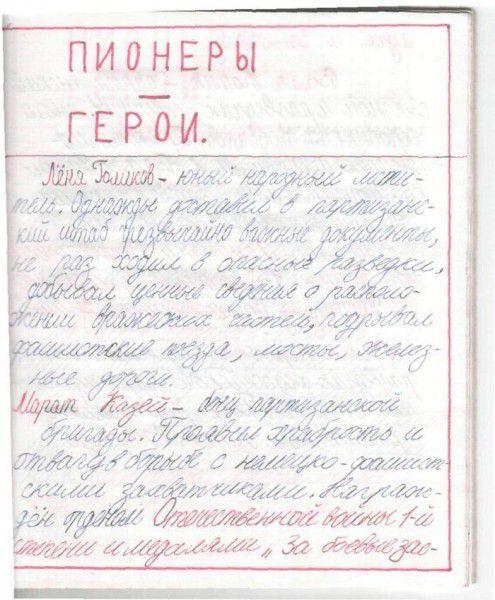 ПИОНЕРЫ
—
ГЕРОИ.
Лёня Голиков – юный народный мсти-
тель. Однажды доставил в партизанс-
кий штаб чрезвычайно важные документы,
не раз ходил в опасные разведки,
добывал ценные сведения о располо-
жении вражеских частей, подрывал
фашистские поезда, мосты, желез-
ные дороги.
Марат Казей – боец партизанской
бригады. Проявил храбрость и
отвагу в борьбе с немецко-фашист-
скими захватчиками. Награж-
дён орденом Отечественной войны 1-й
степени и медалями „За боевые зас-